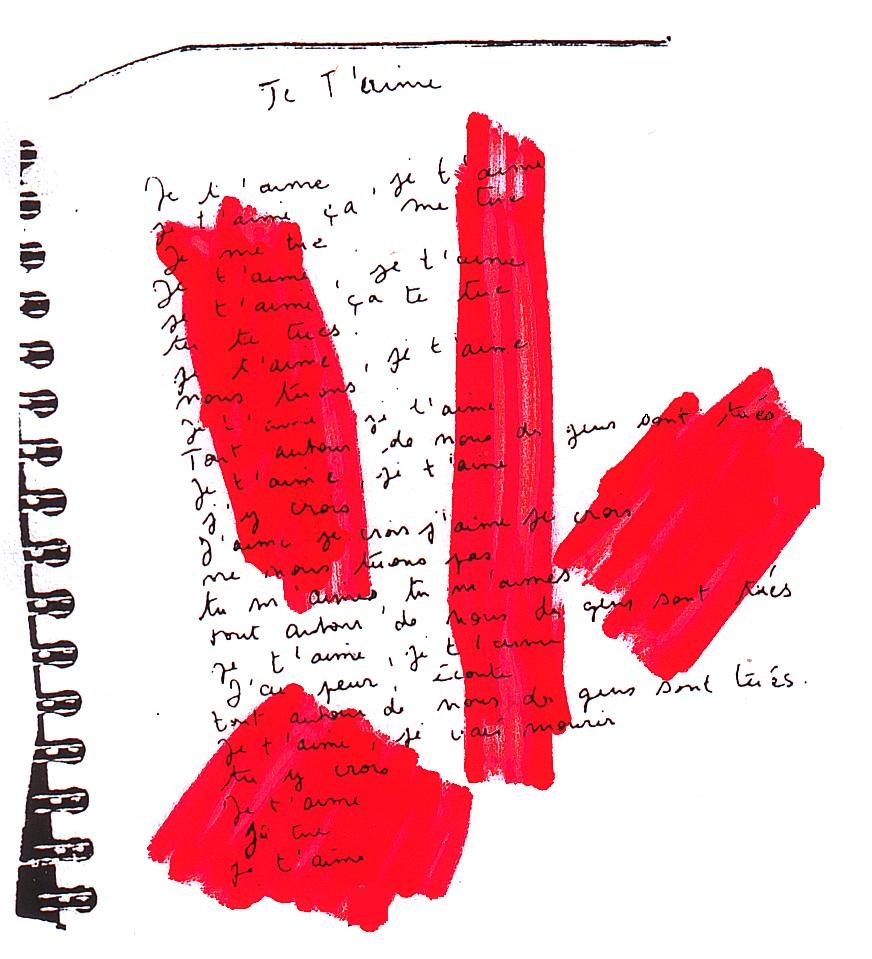 Je T'aime
Je t'aime, je t'aime
je t'aime ça me tue
Je me tue
Je t'aime, je t'aime
je t'aime ça te tue
tu te tues.
Je t'aime, je t'aime
nous tuons
je t'aime je t'aime
Tout autour de nous des gens sont tués
Je t'aime, je t'aime
j'y crois
J'aime je crois j'aime je crois
ne nous tuons pas
tu m'aimes tu m'aimes
tout autour de nous des gens sont tués
je t'aime, je t'aime
J'ai peur, écoute
tout autour de nous des gens sont tués.
Je t'aime, je vais mourir
tu y crois
Je t'aime
tue
je t'aime